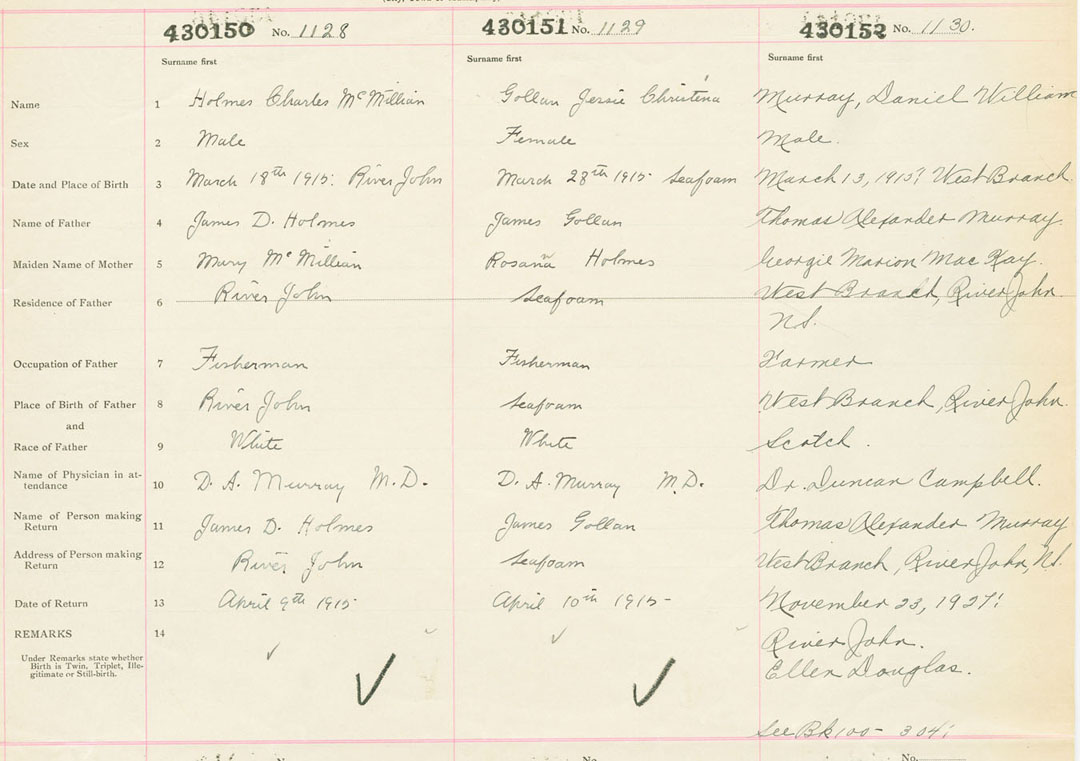 430150 No. 1128
430151 No. 1129
430152 No. 1130.
Surname first
Surname first
Surname first
Name 1 Holmes Charles McMillian
Gollan Jessie Christena
Murray, Daniel William
Sex 2 Male
Female
Male.
Date and Place of Birth 3 March 18th 1915. River John
March 28th 1915 Seafoam
March 13, 1915? West Branch.
Name of Father 4 James D. Holmes
James Gollan
Thomas Alexander Murray.
Maiden Name of Mother 5 Mary McMillian
Rosana Holmes
Georgie Marion MacKay.
Residence of Father 6 River John
Seafoam
West Branch, River John.
N.S.
Occupation of Father 7 Fisherman
Fisherman
Farmer
Place of Birth of Father 8 River John
Seafoam
West Branch, River John.
and
Race of Father 9 White
White
Scotch.
Name of Physician in at-
tendance 10 D. A. Murray M.D.
D. A. Murray M.D.
Dr. Duncan Campbell.
Name of Person making
Return 11 James D. Holmes
James Gollan
Thomas Alexander Murray
Address of Person making
Return 12 River John
Seafoam
West Branch, River John, N.S.
Date of Return 13 April 9th 1915
April 10th 1915
November 23, 1927.
REMARKS 14
Under Remarks state whether
Birth is Twin, Triplet, Ille-
gitimate or Still-birth.
River John.
Ellen Douglas.
See Bk 100 - 304.
No.
No.
No.